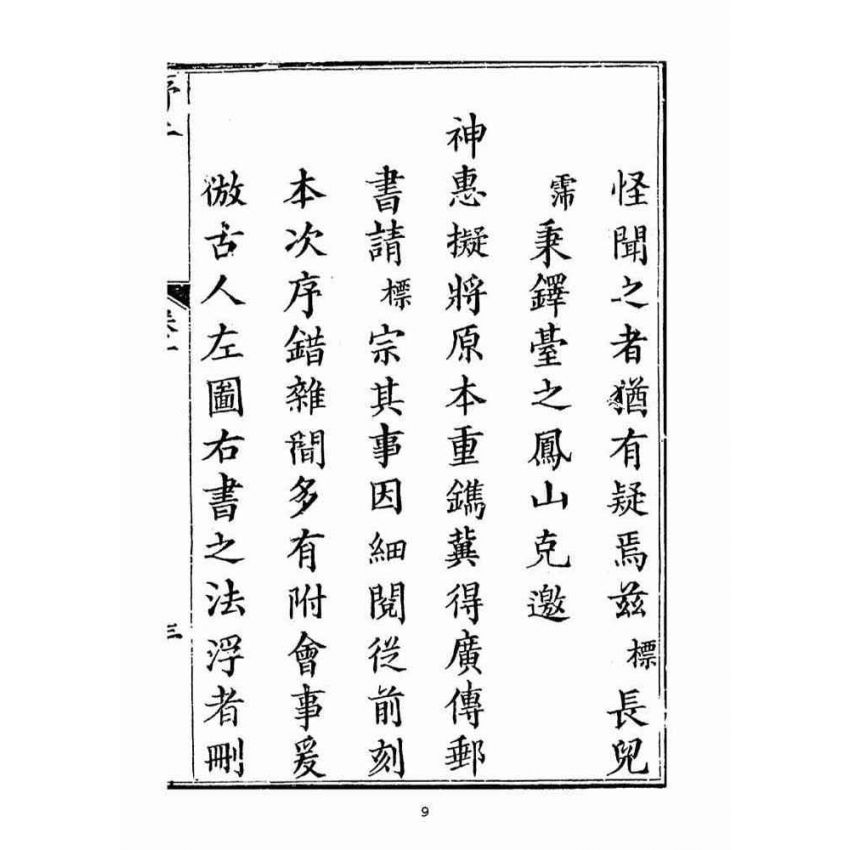 怪聞之者猶有疑焉茲標長兒
霈秉鐸臺之鳳山克邀
神惠擬將原本重鐫冀得廣傳郵
書請標宗其事因細閱從前刻
本次序錯雜間多有附會事爰
倣古人左圖右書之法浮者刪
序二
卷一
三
9